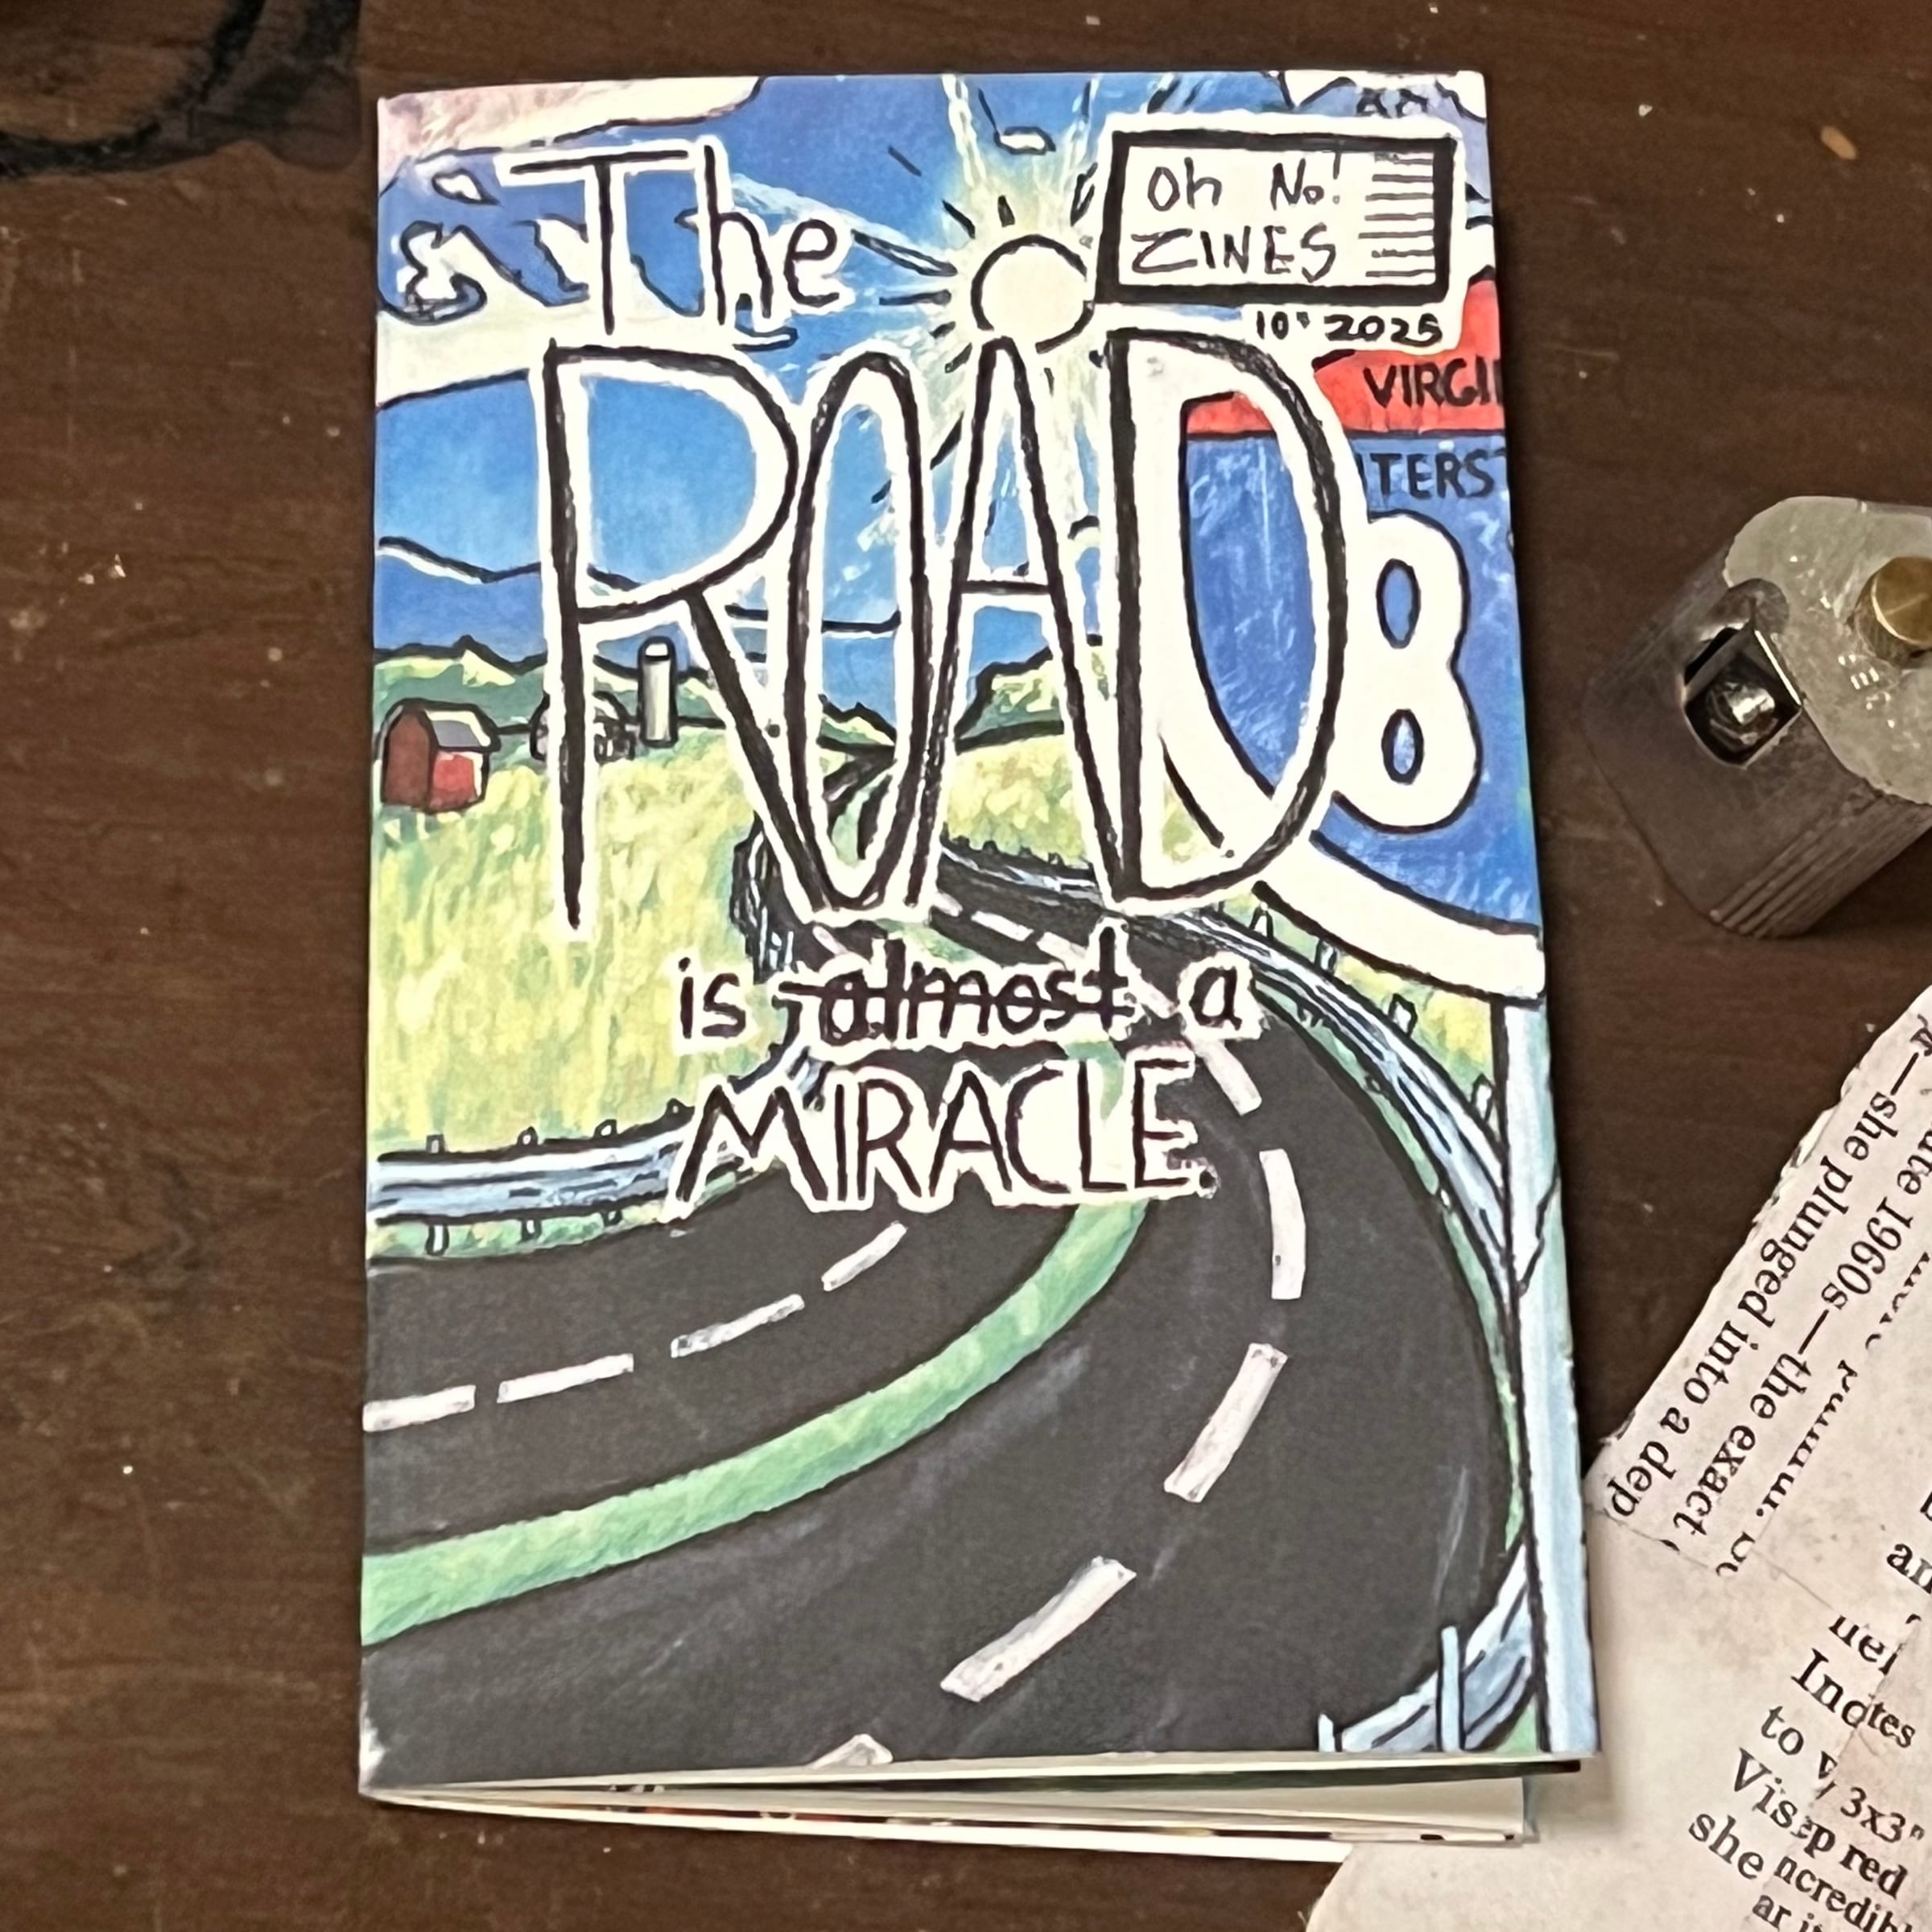 The
Oh No!
ZINES
10' 2025
ROAD
VIRGI
TERS
8
is almost a
MIRACLE.
she plunged into a dep
1960s—the exact
Inotes
to
3x3"
Vis
ep red
she
ncredibl